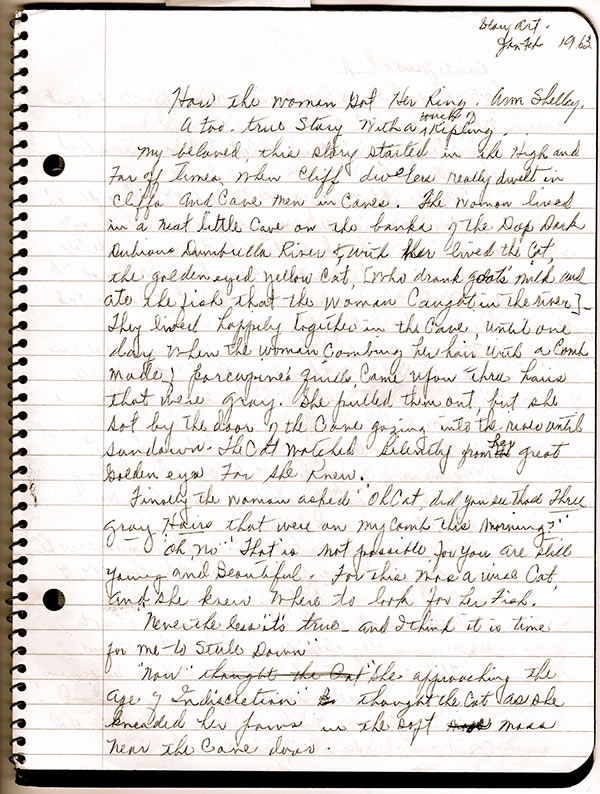 Story Art.
Jan-Feb 1963
How the Woman Got Her Ring. Ann Shelley.
A too-true Story With a touch of Kipling.
My beloved, this story started in the High and
Far off times, when Cliff dwellers really dwelt in
Cliffs and Cave men in Caves. The Woman lived
in a neat little Cave on the banks of the Dop Dark
Dubious Dumbrulla River & with her lived the Cat,
the golden eyed yellow Cat, [Who drank goats' milk and
ate the fish that the Woman Caught in the river]-
They lived happily together in the Cave, until one
day when the woman Combing her hair with a Comb
made of porcupine's quills, Came upon three hairs
that were gray. She pulled them out, but she
sat by the door of the Cave gazing into the river until
sundown. The Cat watched silently from her great
Golden eyes For she Knew.
Finally the Woman asked "Oh Cat, did you see those Three
gray Hairs that were on my Comb this morning?"
"Oh, No" "That is not possible for you are still
young and Beautiful. For this was a wise Cat
and she knew where to look for her Fish.
"Never the less it's true - and I think it is time
for me to Settle Down"
"Now" thought the Cat "She approaching the
age of Indiscretion" thought the Cat as she
kneaded her paws in the soft moss
near the Cave door.